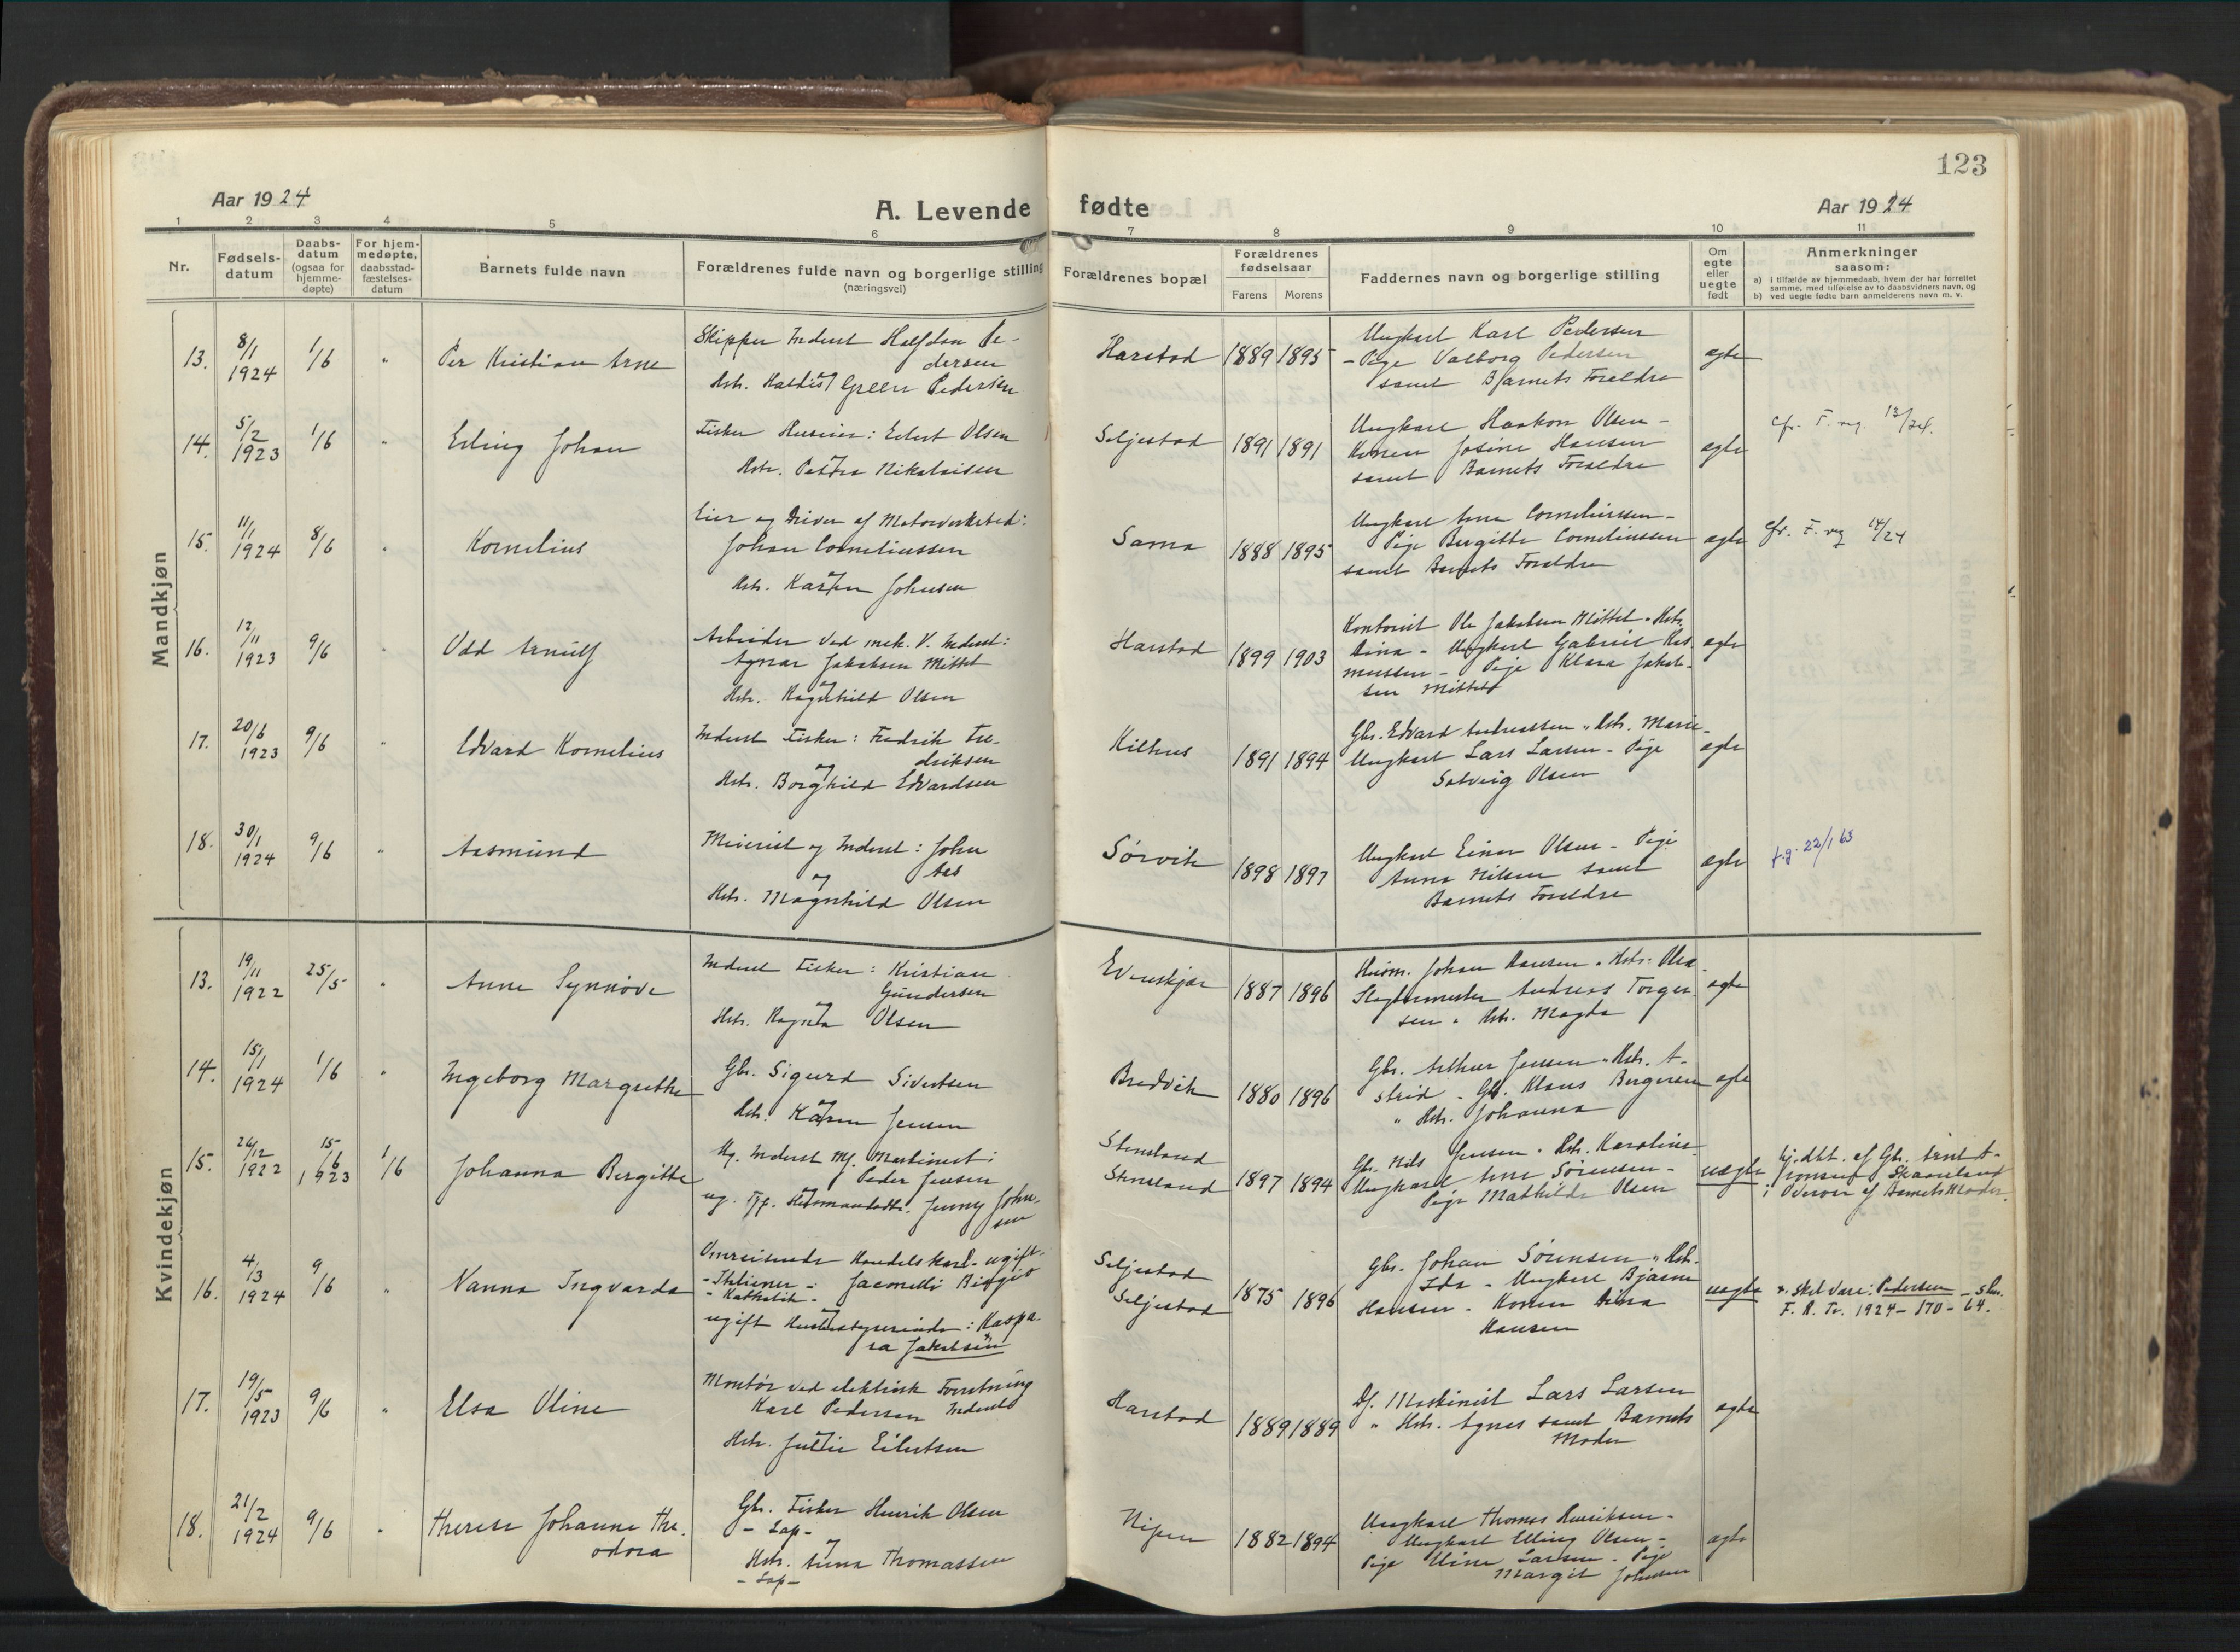 123
Aar 1924
A. Levende fødte
Aar 1924
1 2 3 4 5 6 7 8 9 10 11
Nr.
Fødsels-
datum
Daabs-
datum
(ogsaa for
hjemme-
døpte)
For hjem-
medøpte,
daabsstad-
fæstelses-
datum
Barnets fulde navn
Forældrenes fulde navn og borgerlige stilling
(næringsvei)
Forældrenes bopæl
Forældrenes
fødselsaar
Farens Morens
Faddernes navn og borgerlige stilling
Om
egte
eller
uegte
født
Anmerkninger
saasom:
a) i tilfælde av hjemmedaab, hvem der har forrettet
samme, med tilføielse av to daabsvidners navn, og
b) ved uegte fødte barn anmelderens navn m. v.
Mandkjøn
13. 8/1 1924 1/6 " Per Kristian Arne
Skipper Inderst Halfdan Pe-
dersen
og
Hstr. Green Pedersen
Harstad 1889 1895
Ungkarl Karl Pedersen
- Pige Valborg Pedersen
samt Barnets Forældre
ægte
14. 5/2 1923 1/6 " Erling Johan
Fisker Huseier: Eilert Olsen
og
Hstr. Petra Nikolaisen
Seljestad 1891 1891
Ungkarl Haakon Olsen -
Konen Josine Hansen
samt Barnets Forældre
ægte
cfr. F. reg. 13/24.
15. 11/1 1924 8/6 " Kornelius
Eier og Driver af Motorverksted:
Johan Corneliussen
og
Hstr. Karen Johnsen
Sama 1888 1895
Ungkarl Arne Corneliussen -
Pige Bergitte Corneliussen
samt Barnets Forældre
ægte
cfr. F. reg 14/24
16. 12/11 1923 9/6 " Odd Arnulf
Arbeider ved mek. V. Inderst:
Agnar Jakobsen Mittet
og
Hstr. Ragnhild Olsen
Harstad 1899 1903
Kontorist Ole Jakobsen Mittet " Hstr.
Dina - Ungkarl Gabriel Ras
mussen - Pige Klara Jakob-
sen Mittet
ægte
17. 20/6 1923 9/6 " Edvard Kornelius
Inderst Fisker: Fredrik Fre-
driksen
og
Hstr. Borghild Edvardsen
Kilhus 1891 1894
Gbr. Edvard Andreassen " Hstr. Marie -
Ungkarl Lars Larsen - Pige
Solveig Olsen
ægte
18. 30/1 1924 9/6 " Aasmund
Meierist og Inderst: John
Aas
og
Hstr. Magnhild Olsen
Sørvik 1898 1897
Ungkarl Einar Olsen - Pige
Anna Nilsen samt
Barnets Forældre
ægte
f.g. 22/1 63
Kvindekjøn
13. 19/11 1922 25/5 " Anne Synnøve
Inderst Fisker: Kristian
Gundersen
og
Hstr. Ragna Olsen
Evenskjær 1887 1896
Husm. Johan Hansen " Hstr. Olea -
Slagtermester Andreas Torger
sen " Hstr. Magda
ægte
14. 15/1 1924 1/6 " Ingeborg Margrethe
Gbr. Sigurd Sivertsen
og
Hstr. Karen Jensen
Bredvik 1880 1896
Gbr. Arthur Jensen " Hstr. A-
strid - Gbr. Klaus Bergersen
" Hstr. Johanna
ægte
15. 26/12 1922 15/6 1923 1/6 Johanna Bergitte
Ug. Inderst Mf. Maskinist:
Peder Jensen
og
ug. Tjp. Husmandsdtr. Jenny John-
sen
Stensland
Stensland 1897 1894
Gbr. Nils Jensen " Hstr. Karoline -
Ungkarl Arne Sørensen -
Pige Mathilde Olsen
uægte
hj. dbt. af Gbr. Arnt A-
ronsen Skaanland
i Overvær af Barnets Moder.
16. 4/3 1924 9/6 " Nanna Ingvarda
Omreisende Handelskarl - ugift -
- Italiener - Jacomelli Biagio
- Katholik -
og
ugift Husbestyrerinde: Kaspa-
ra Jakobsen
Seljestad
Seljestad 1875 1896
Gbr. Johan Sørensen " Hstr.
Ida - Ungkarl Bjarne
Hansen - Konen Dina
Hansen
uægte
x. skal være: Pedersen - skr.
F. R. Tr. 1924 - 170 - 64.
17. 19/5 1923 9/6 " Elsa Oline
Montør ved elektrisk Forretning
Karl Pedersen Inderst
og
Hstr. Julie Eilertsen
Harstad 1889 1889
Df. Maskinist Lars Larsen
" Hstr. Agnes samt Barnets
Moder
ægte
18. 21/2 1924 9/6 " Therese Johanne The-
odora
Gbr. Fisker Henrik Olsen
- Lap -
og
Hstr. Anna Thomassen
- Lap -
Nipen 1882 1894
Ungkarl Thomas Henriksen -
Ungkarl Elling Olsen -
Pige Oline Larsen - Pige
Margit Johnsen
ægte